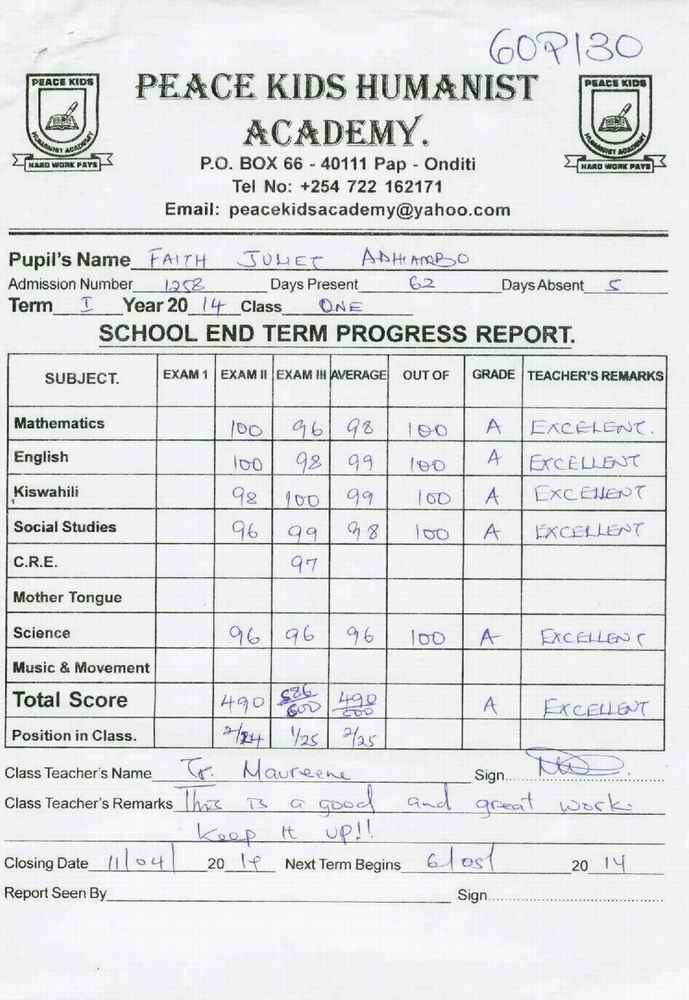 60P130
PEACE KIDS HUMANIST
ACADEMY.
PEACE KIDS
HUMANIST ACADEMY
HARD WORK PAYS
PEACE KIDS
HUMANIST ACADEMY
HARD WORK PAYS
P.O. BOX 66 - 40111 Pap - Onditi
Tel No: +254 722 162171
Email: peacekidsacademy@yahoo.com
Pupil's Name FAITH JULIET ADHIAMBO
Admission Number 1258 Days Present 62 Days Absent 5
Term I Year 20 14 Class ONE
SCHOOL END TERM PROGRESS REPORT.
SUBJECT. EXAM 1 EXAM II EXAM III AVERAGE OUT OF GRADE TEACHER'S REMARKS
Mathematics 100 96 98 100 A EXCELENT.
English 100 98 99 100 A EXCELLENT
Kiswahili 98 100 99 100 A EXCELLENT
Social Studies 96 99 98 100 A EXCELLENT
C.R.E. 97
Mother Tongue
Science 96 96 96 100 A EXCELLENT
Music & Movement
Total Score 490 586/600 490/500 A EXCELLENT
Position in Class. 2/24 1/25 2/25
Class Teacher's Name Tr. Maureene Sign......
Class Teacher's Remarks This is a good and great work.
Keep it up!!
Closing Date 11/04/ 20 14 Next Term Begins 6/05/ 20 14
Report Seen By Sign......